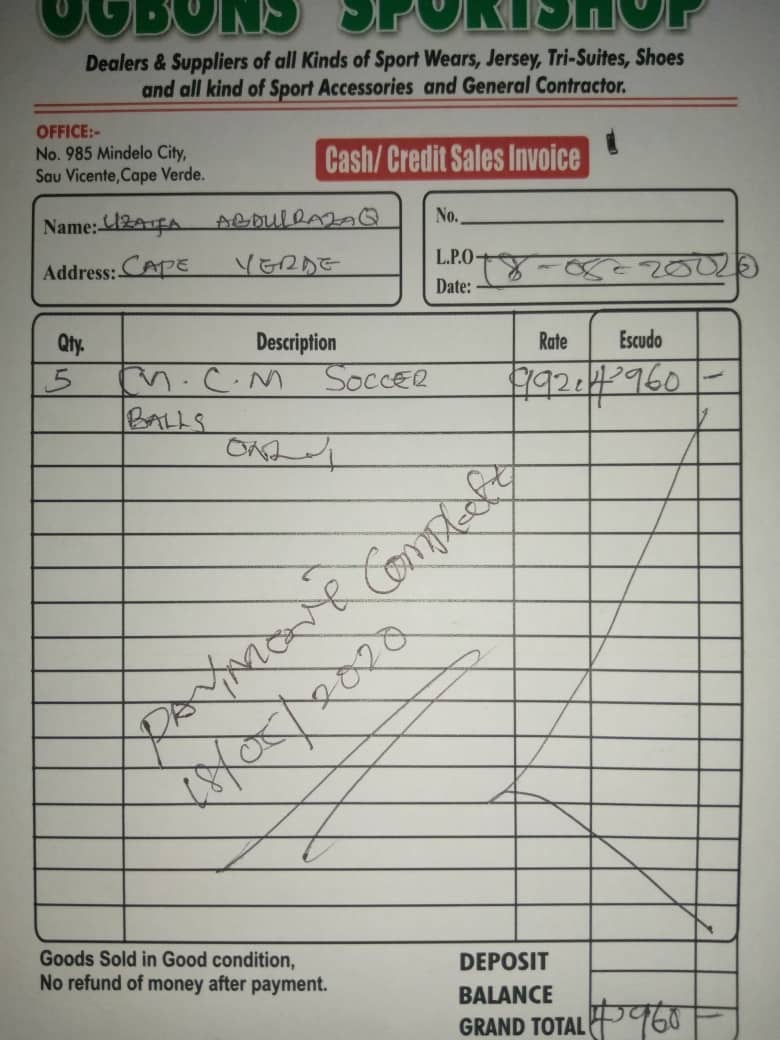 OGBONS SPORTSHOP
Dealers & Suppliers of all Kinds of Sport Wears, Jersey, Tri-Suites, Shoes
and all kind of Sport Accessories and General Contractor.
OFFICE:-
No. 985 Mindelo City,
Sau Vicente,Cape Verde.
Cash/ Credit Sales Invoice
Name: UZAIFA ABDULRAZAQ
Address: CAPE VERDE
No.
L.P.O
Date: 18-05-2020
Qty. Description Rate Escudo
5 M.C.M SOCCER 992. 4960 -
BALLS
ONLY
Payment Complete
18/05/2020
Goods Sold in Good condition,
No refund of money after payment.
DEPOSIT
BALANCE
GRAND TOTAL 4960 -